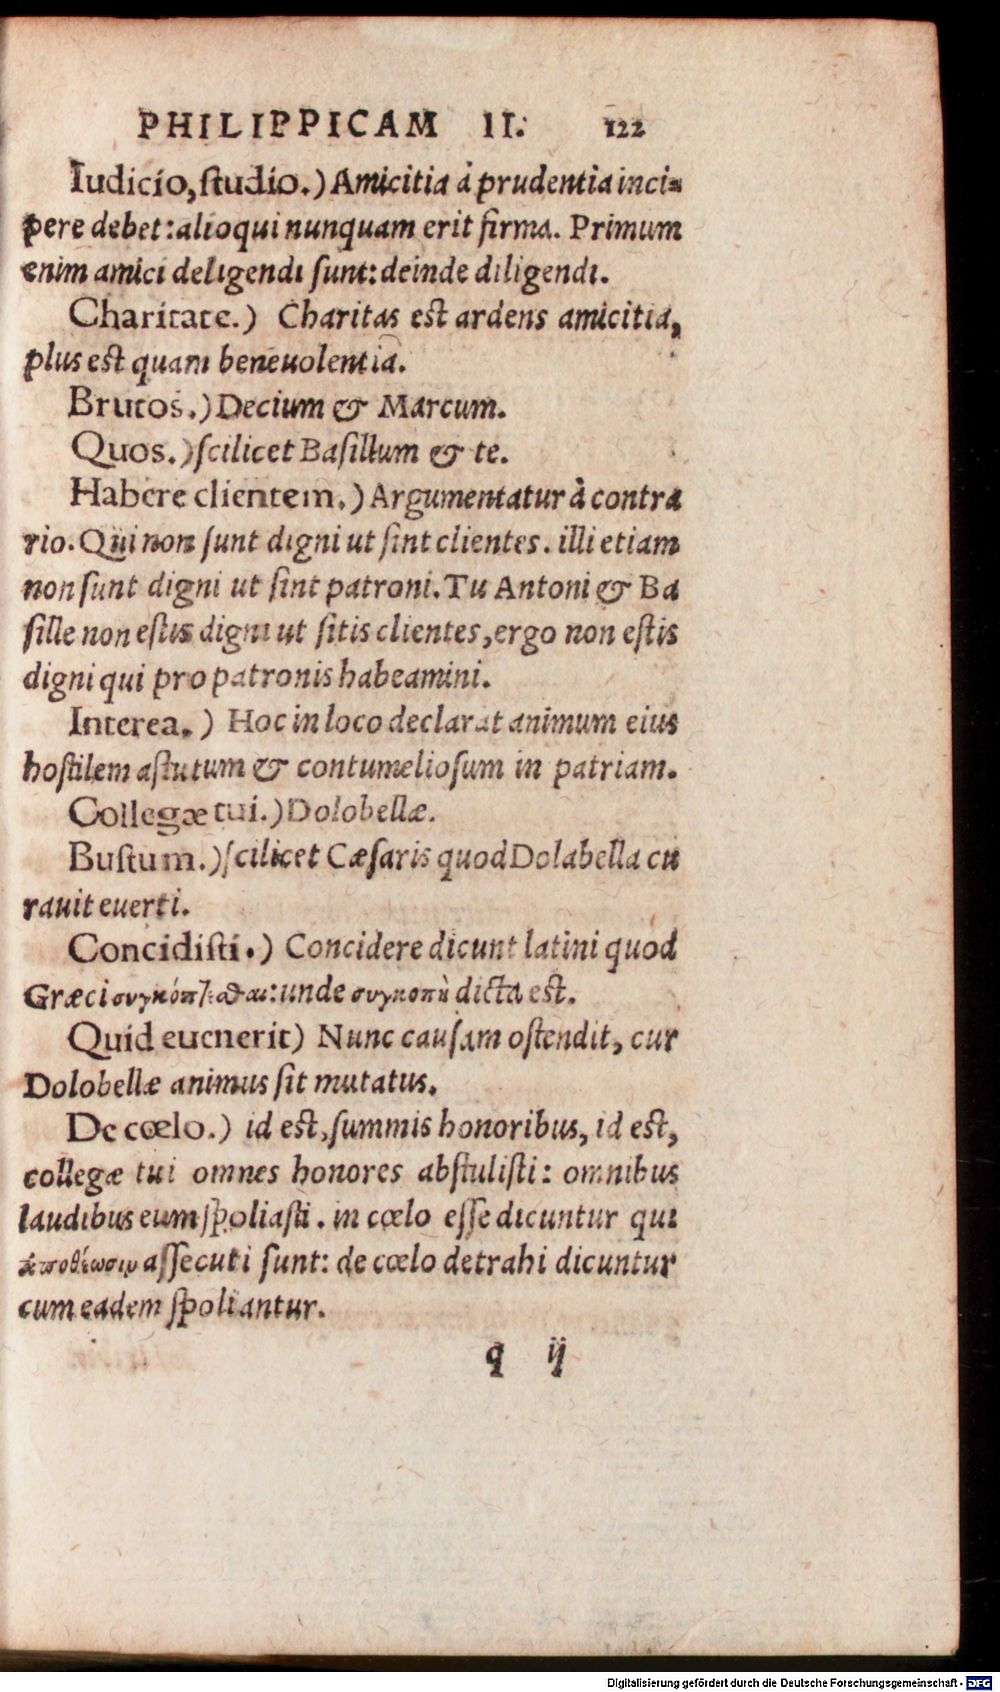 PHILIPPICAM II. 122
Iudicio, studio.) Amicitia à prudentia inci=
pere debet: alioqui nunquam erit firma. Primum
enim amici deligendi sunt: deinde diligendi.
Charitate.) Charitas est ardens amicitia,
plus est quam beneuolentia.
Brutos.) Decium & Marcum.
Quos.) scilicet Basillum & te.
Habere clientem.) Argumentatur à contra
rio. Qui non sunt digni ut sint clientes. illi etiam
non sunt digni ut sint patroni. Tu Antoni & Ba
sille non estis digni ut sitis clientes, ergo non estis
digni qui pro patronis habeamini.
Interea.) Hoc in loco declarat animum eius
hostilem astutum & contumeliosum in patriam.
Collegæ tui.) Dolobellæ.
Bustum.) scilicet Cæsaris quod Dolabella cu
rauit euerti.
Concidisti.) Concidere dicunt latini quod
Græci συγκόπτεσθαι: unde συγκοπὴ dicta est.
Quid euenerit) Nunc causam ostendit, cur
Dolobellæ animus sit mutatus.
De cœlo.) id est, summis honoribus, id est,
collegæ tui omnes honores abstulisti: omnibus
laudibus eum spoliasti. in cœlo esse dicuntur qui
ἀποθέωσιν assecuti sunt: de cœlo detrahi dicuntur
cum eadem spoliantur.
q ij
Digitalisierung gefördert durch die Deutsche Forschungsgemeinschaft - DFG